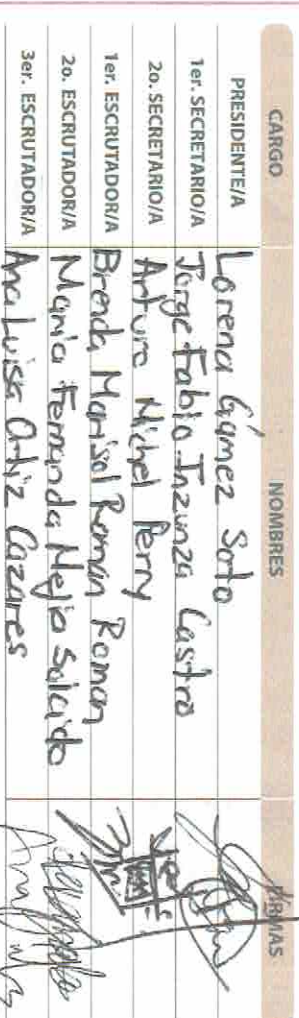 CARGO NOMBRES FIRMAS
PRESIDENTE/A Lorena Gámez Soto
1er. SECRETARIO/A Jorge Fabio Inzunza Castro
2o. SECRETARIO/A Arturo Michel Perry
1er. ESCRUTADOR/A Brenda Marisol Roman Roman
2o. ESCRUTADOR/A Maria Fernanda Mejia Salcido
3er. ESCRUTADOR/A Ana Luisa Ortiz Cazares